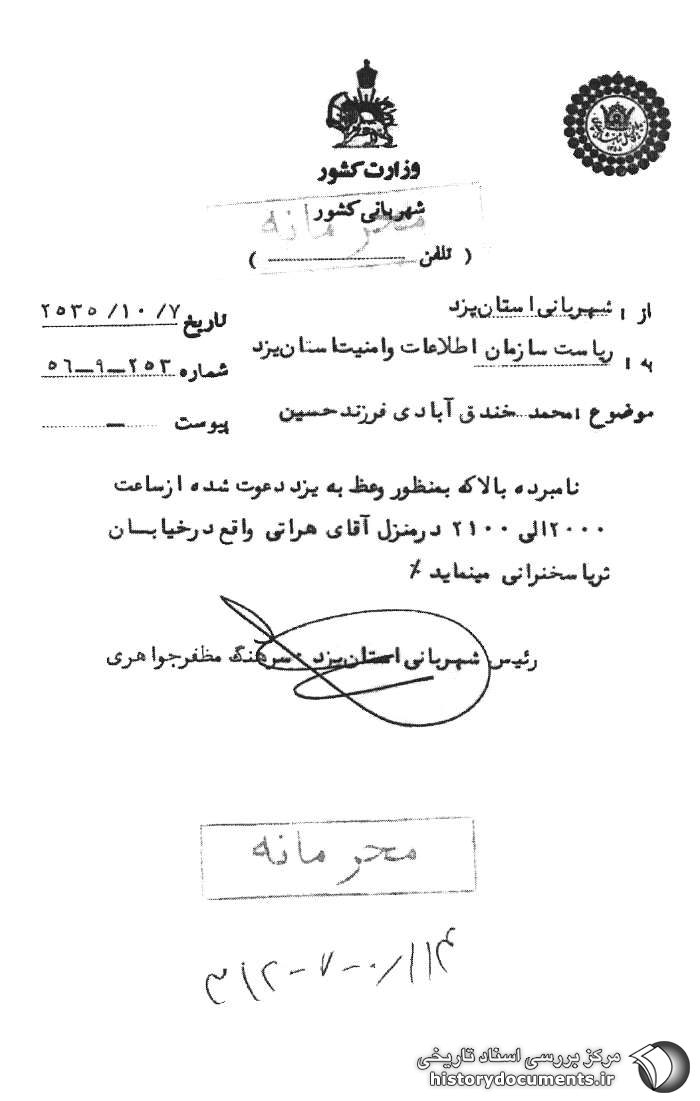 وزارت کشور
شهربانی کشور
محرمانه
( تلفن )
از : شهربانی استان یزد
تاریخ ۲۵۳۵/۱۰/۷
به : ریاست سازمان اطلاعات وامنیت استان یزد
شماره ۲۵۳-۹-۵۶
موضوع : محمد خندق آبادی فرزند حسین
پیوست -
نامبرده بالا که بمنظور وعظ به یزد دعوت شده از ساعت
۲۰۰۰ الی ۲۱۰۰ در منزل آقای هراتی واقع در خیابان
ثریا سخنرانی مینماید ٪
رئیس شهربانی استان یزد : سرهنگ مظفر جواهری
محرمانه
مرکز بررسی اسناد تاریخی
historydocuments.ir